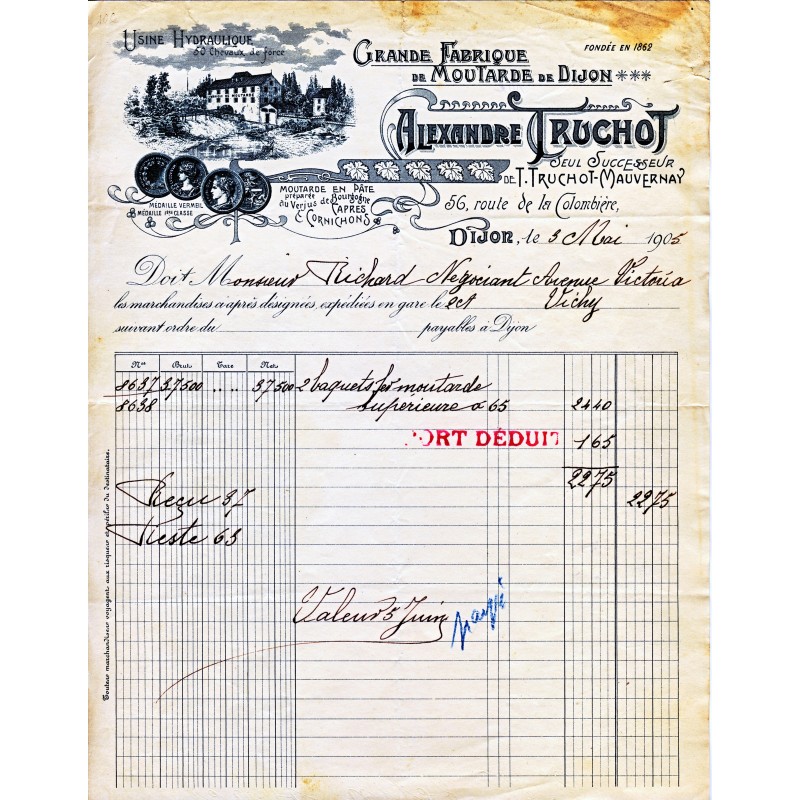 Usine Hydraulique
50 Chevaux de force
MOUTARDE
Grande Fabrique
FONDÉE EN 1862
de Moutarde de Dijon ***
Alexandre Truchot
Seul Successeur
de T. Truchot-Mauvernay
56, route de la Colombière,
MÉDAILLE VERMEIL
MÉDAILLE 1ère CLASSE
MOUTARDE EN PÂTE
préparée
au Verjus de Bourgogne
CAPRES
& CORNICHONS
Dijon, le 3 Mai 1905
Doit Monsieur Richard Négociant Avenue Victoria
les marchandises ci-après désignées, expédiées en gare le Vichy
suivant ordre du payables à Dijon
Nos Brut Tare Net
8637 37,500 .. .. 37500 2 baquets fer moutarde
8638 supérieure à 65 2440
PORT DÉDUIT 165
2275
2275
Reçu 37
Reste 63
Valeur 5 Juin
Toutes marchandises voyagent aux risques et périls du destinataire.